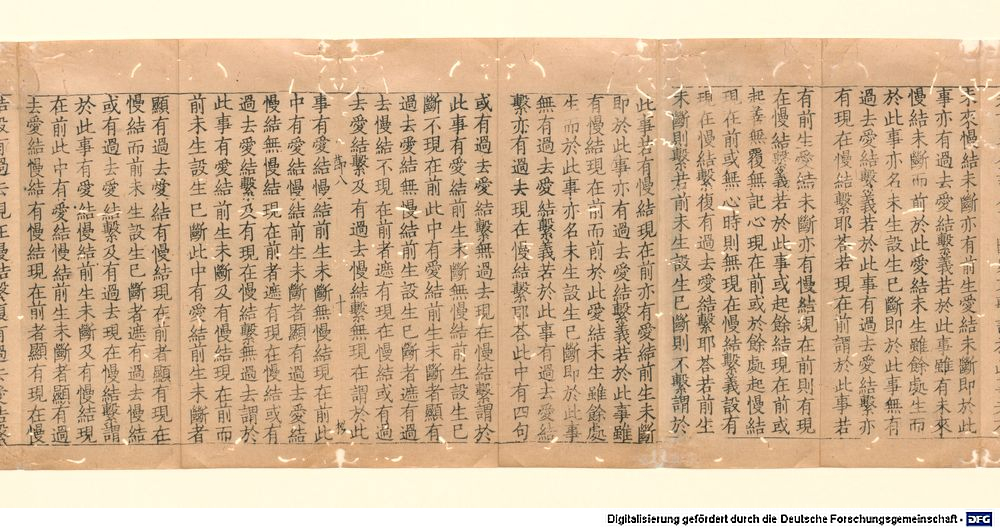 未來慢結未斷亦有前生愛結未斷即於此
事亦有過去愛結繫義若於此事雖有未來
慢結未斷而前於此愛結未生雖餘處生而
於此事亦名未生設生已斷即於此事無有
過去愛結繫義若於此事有過去愛結繫亦
有現在慢結繫耶荅若現在前謂於此事若
有前生愛結未斷亦有慢結現在前則有現
在慢結繫義若於此事或起餘結現在前或
起善無覆無記心現在前或於餘處起慢結
現在前或無心時則無現在慢結繫義設有
現在慢結繫復有過去愛結繫耶荅若前生
未斷則繫若前未生設生已斷則不繫謂於
此事若有慢結現在前亦有愛結前生未斷
即於此事亦有過去愛結繫義若於此事雖
有慢結現在前而前於此愛結未生雖餘處
生而於此事亦名未生設生已斷即於此事
無有過去愛結繫義若於此事有過去愛結
繫亦有過去現在慢結繫耶荅此中有四句
或有過去愛結繫無過去現在慢結繫謂於
此事有愛結前生未斷無慢結前生設生已
斷不現在前此中有愛結前生未斷者顯有
過去愛結無慢結前生設生已斷者遮有過
去慢結不現在前者遮有現在慢結或有過
去愛結繫及有過去慢結繫無現在謂於此
八 十
事有愛結慢結前生未斷無慢結現在前此
中有愛結慢結前生未斷者顯有過去愛結
慢結無慢結現在前者遮有現在慢結或有
過去愛結繫及有現在慢結繫無過去謂於
此事有愛結前生未斷及有慢結現在前而
前未生設生已斷此中有愛結前生未斷者
顯有過去愛結有慢結現在前者顯有現在
慢結而前未生設生已斷者遮有過去慢結
或有過去愛結繫及有過去現在慢結繫謂
於此事有愛結慢結前生未斷及有慢結現
在前此中有愛結慢結前生未斷者顯有過
去愛結慢結有慢結現在前者顯有現在慢
Digitalisierung gefördert durch die Deutsche Forschungsgemeinschaft - DFG